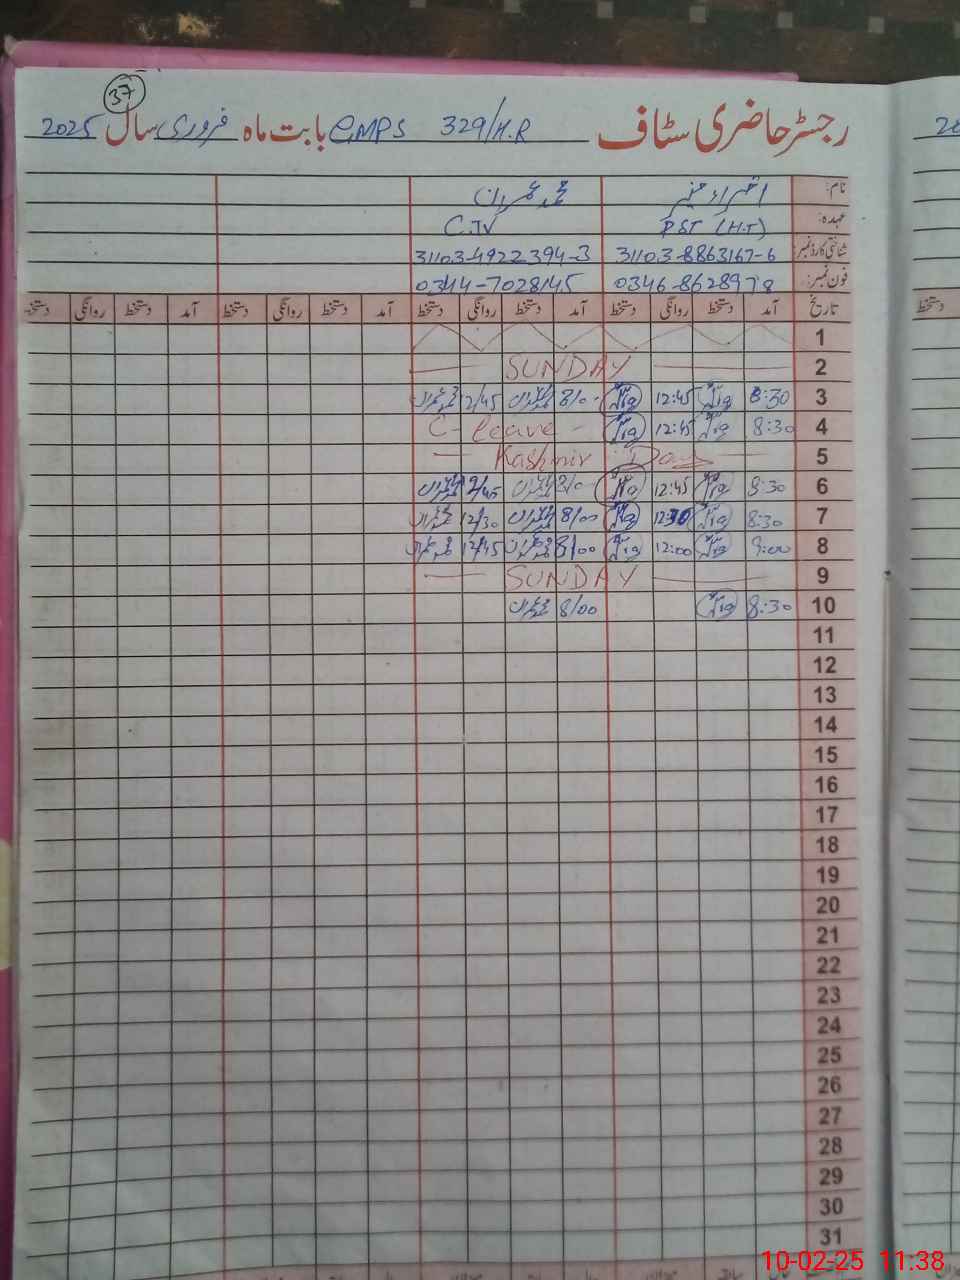 37
رجسٹر حاضری سٹاف GMPS 329/H.R بابت ماہ فروری سال 2025
نام: اقراء منیر محمد عمران
عہدہ: PST (H.T) C.IV
شناختی کارڈ نمبر: 31103-8863167-6 31103-4922394-3
فون نمبر: 0346-8628978 0344-7028145
تاریخ آمد دستخط روانگی دستخط آمد دستخط روانگی دستخط آمد دستخط روانگی دستخط آمد دستخط روانگی دستخط
1
2 SUNDAY
3 8:30 12:45 8/00 محمد عمران 12/45 محمد عمران
4 8:30 12:45 C-leave
5 Kashmir Day
6 8:30 12:45 8/00 محمد عمران 12/45 محمد عمران
7 8:30 12:30 8/00 محمد عمران 12/30 محمد عمران
8 9:00 12:00 8/00 محمد عمران 12/45 محمد عمران
9 SUNDAY
10 8:30 8/00 محمد عمران
11
12
13
14
15
16
17
18
19
20
21
22
23
24
25
26
27
28
29
30
31
10-02-25 11:38